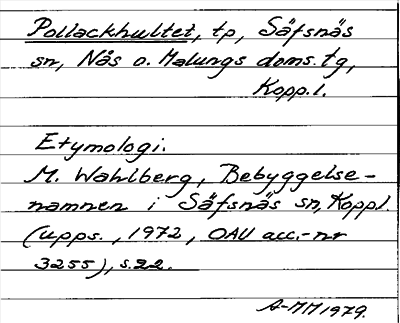 Pollackhultet, tp, Säfsnäs
sn, Nås o. Malungs doms. tg,
Kopp. l.
Etymologi.
M. Wahlberg, Bebyggelse-
namnen i Säfsnäs sn, Koppl.
(Upps., 1972, OAU acc.-nr
3255), s. 22.
A-MM 1979.